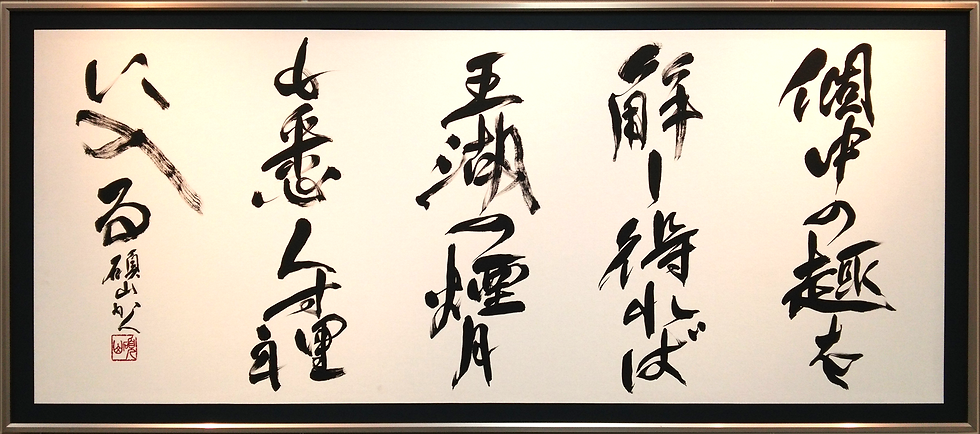 個中の趣を
解し得れば
五湖の煙月
も悉く寸裡
に入る
碩山